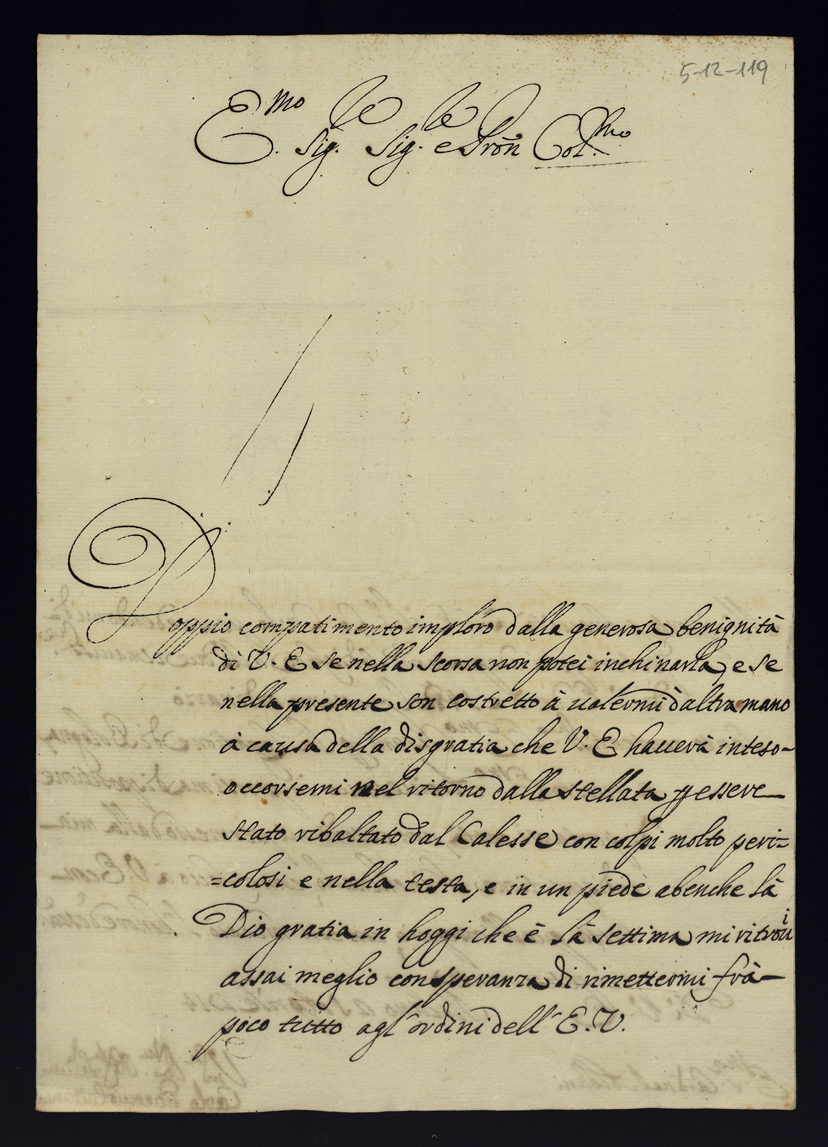 5-12-119
E.mo Sig. Sig. e Pron Col.mo
Doppio compatimento imploro dalla generosa benignità
di V. E se nella scorsa non potei inchinarla, e se
nella presente son costretto à ualermi d'altra mano
à causa della disgratia che V. E hauerà inteso
occorsemi nel ritorno dalla stellata p essere
stato ribaltato dal Calesse con colpi molto peri=
=colosi e nella testa, e in un piede abenche là
Dio gratia in hoggi che è là settima mi ritroui
assai meglio con speranza di rimettermi frà
poco tutto agl'ordini dell'E.V.